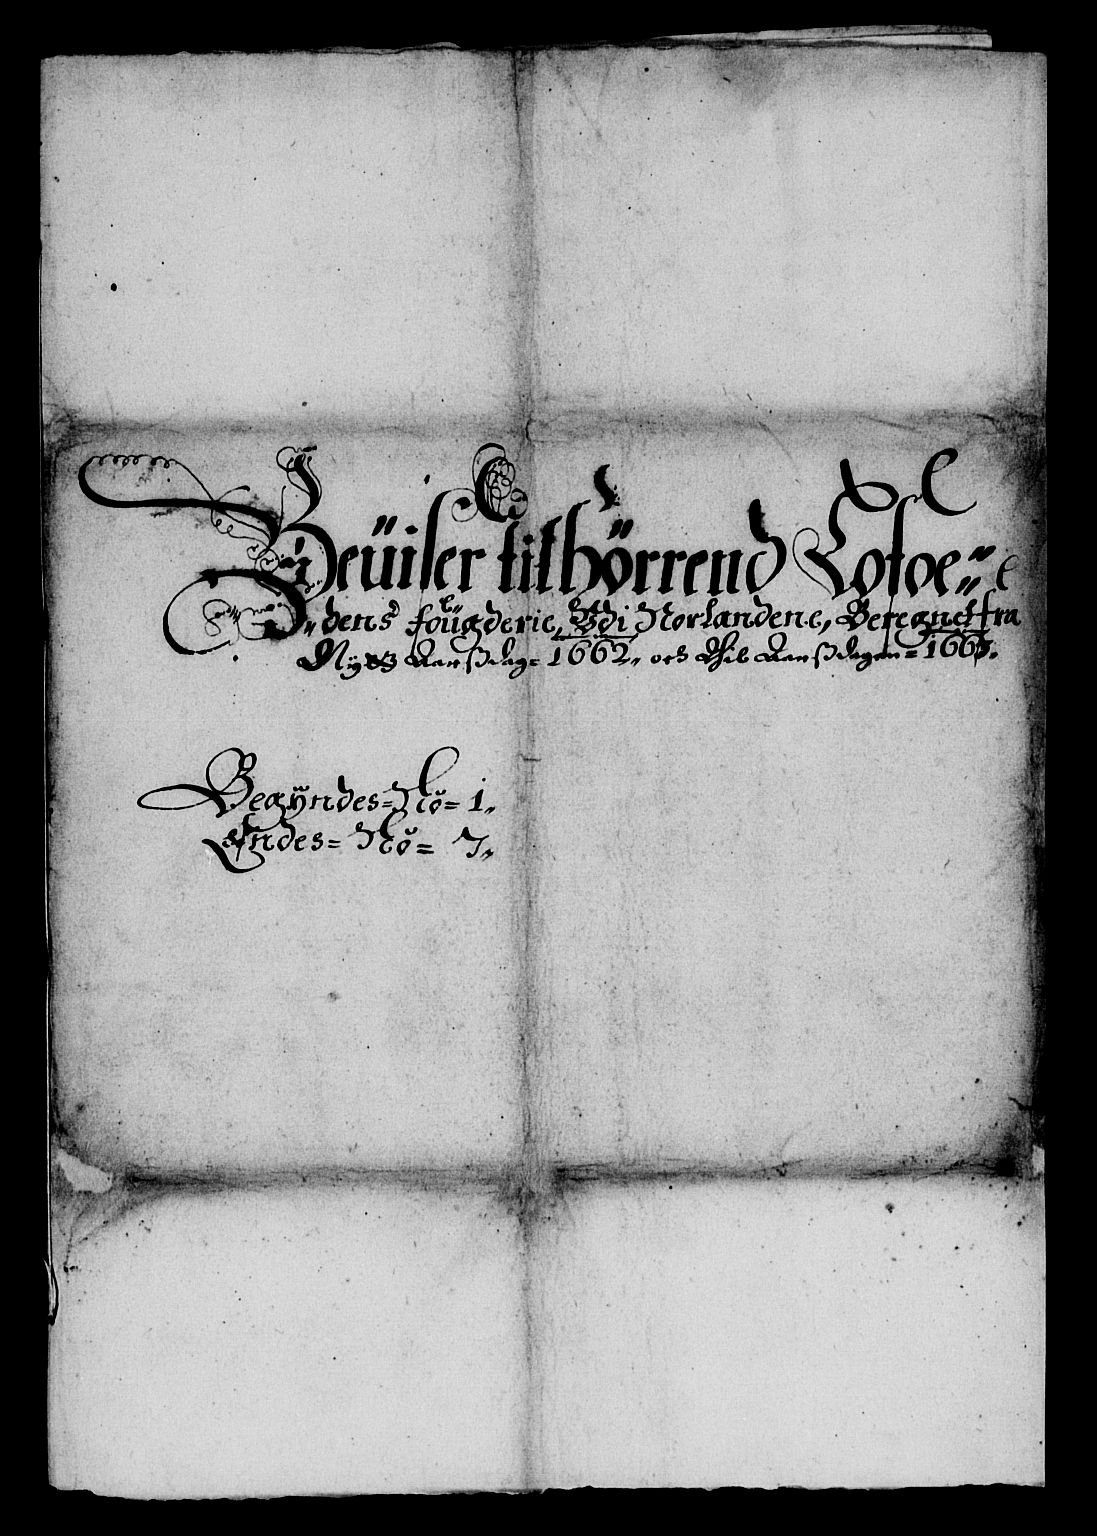 Beüiser tilhörrend Lofoe=
dens fougderie, Vdi Norlandene, Beregnet fra
Nytt Aarssdag= 1662, och Thil Aarssdagen= 1663.
Begÿndes= No= 1,
Endes= No= 7,